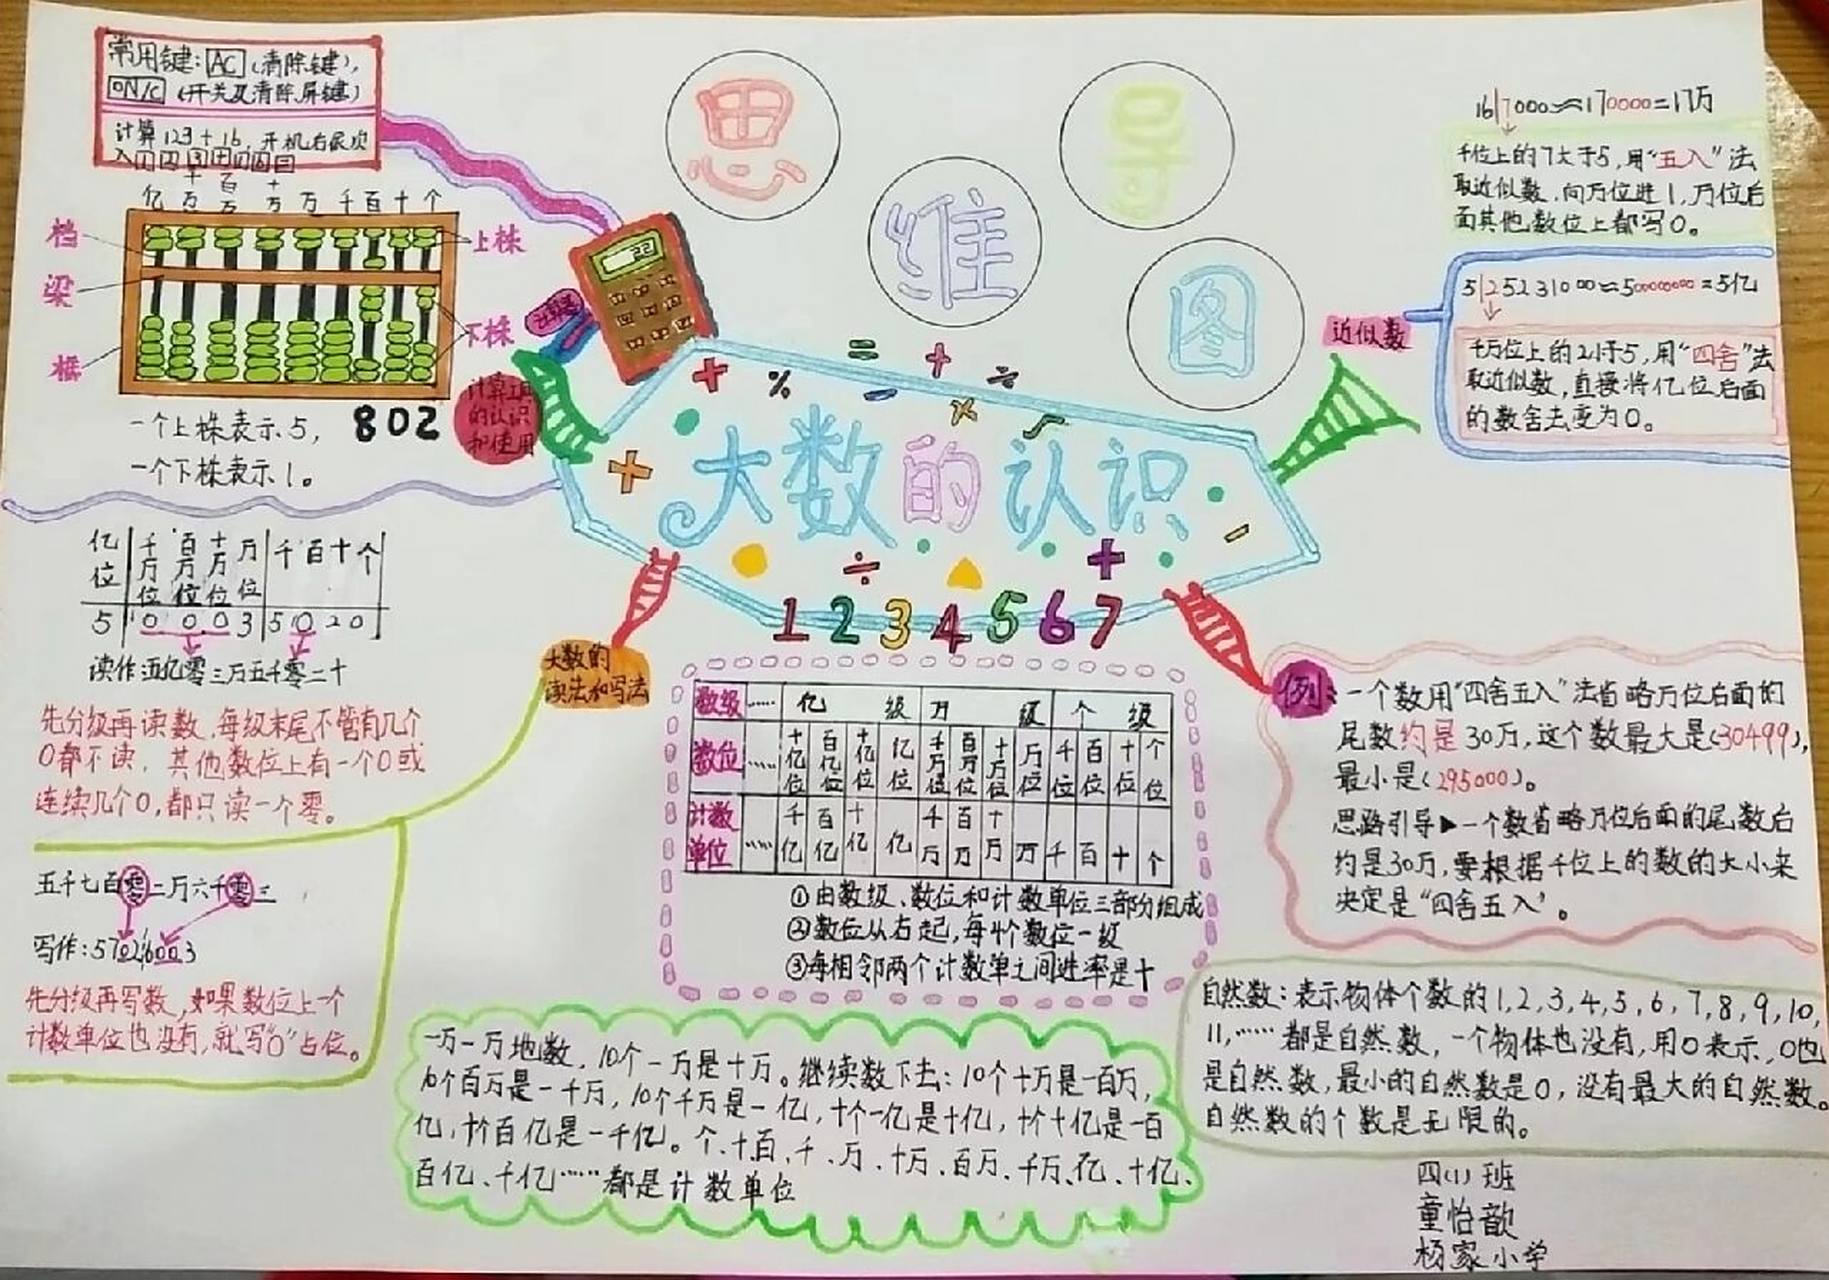 常用键:AC(清除键),
ON/C(开关及清除屏键)
计算123+16,开机后依次
入1 2 3 + 1 6 =
亿 千万 百万 十万 万 千 百 十 个
档
梁
框
上株
下株
802
一个上株表示5,
一个下株表示1。
计算器
计算工具
的认识
和使用
思
维
导
图
大数的认识
1 2 3 4 5 6 7
近似数
167000≈170000=17万
千位上的7大于5,用“五入”法
取近似数,向万位进1,万位后
面其他数位上都写0。
525231000≈500000000=5亿
千万位上的2小于5,用“四舍”法
取近似数,直接将亿位后面
的数舍去变为0。
大数的
读法和写法
亿位 千万位 百万位 十万位 万位 千 百 十 个
5 0 0 0 3 5 0 2 0
读作:五亿零三万五千零二十
先分级再读数,每级末尾不管有几个
0都不读,其他数位上有一个0或
连续几个0,都只读一个零。
五千七百零二万六千零三
写作:57026003
先分级再写数,如果数位上一个
计数单位也没有,就写“0”占位。
数级 …… 亿 级 万 级 个 级
数位 …… 十亿位 百亿位 十亿位 亿位 千万位 百万位 十万位 万位 千位 百位 十位 个位
计数单位 …… 千亿 百亿 十亿 亿 千万 百万 十万 万 千 百 十 个
①由数级、数位和计数单位三部分组成
②数位从右起,每4个数位一级
③每相邻两个计数单之间进率是十
例:一个数用“四舍五入”法省略万位后面的
尾数约是30万,这个数最大是(30499),
最小是(295000)。
思路引导▶一个数省略万位后面的尾数后
约是30万,要根据千位上的数的大小来
决定是“四舍五入”。
一万一万地数,10个一万是十万。继续数下去:10个十万是一百万,
10个百万是一千万,10个千万是一亿,十个一亿是十亿,十个十亿是一百
亿,十个百亿是一千亿。个、十、百、千、万、十万、百万、千万、亿、十亿、
百亿、千亿……都是计数单位
自然数:表示物体个数的1,2,3,4,5,6,7,8,9,10,
11,……都是自然数,一个物体也没有,用0表示,0也
是自然数,最小的自然数是0,没有最大的自然数。
自然数的个数是无限的。
四(1)班
童怡歆
杨家小学